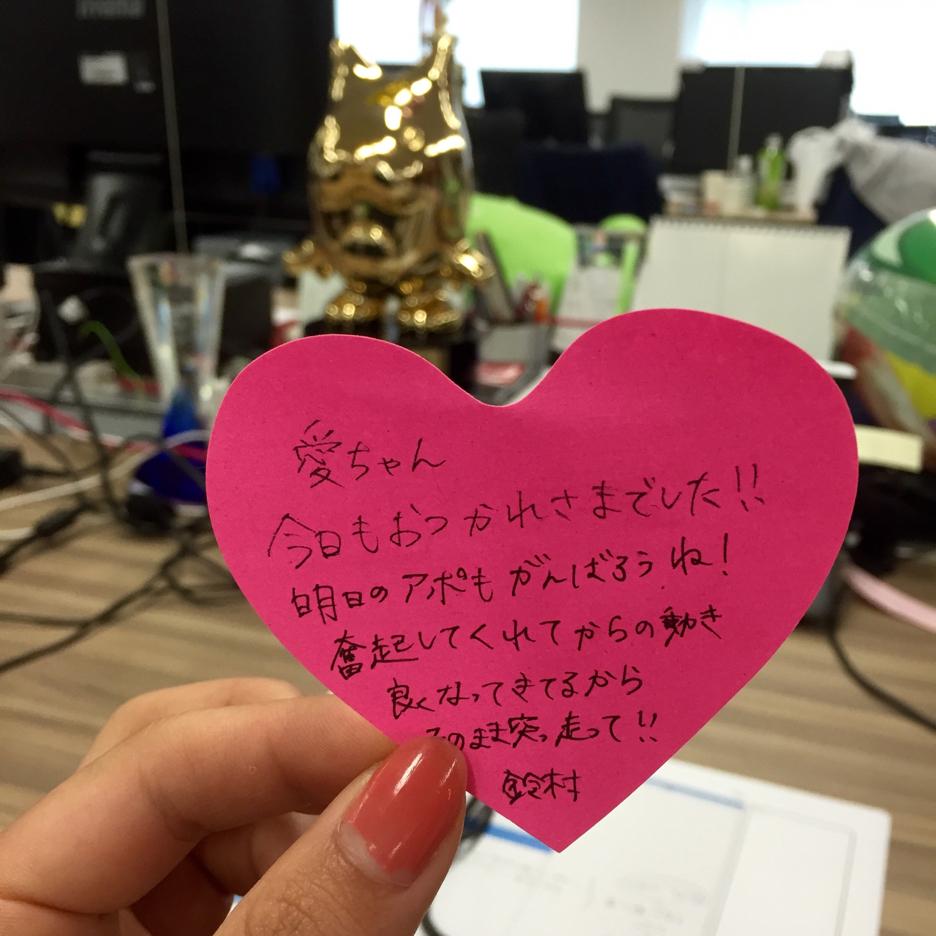 愛ちゃん
今日もおつかれさまでした!!
明日のアポもがんばろうね!
奮起してくれてからの動き
良くなってきてるから
このまま突っ走って!!
鈴村